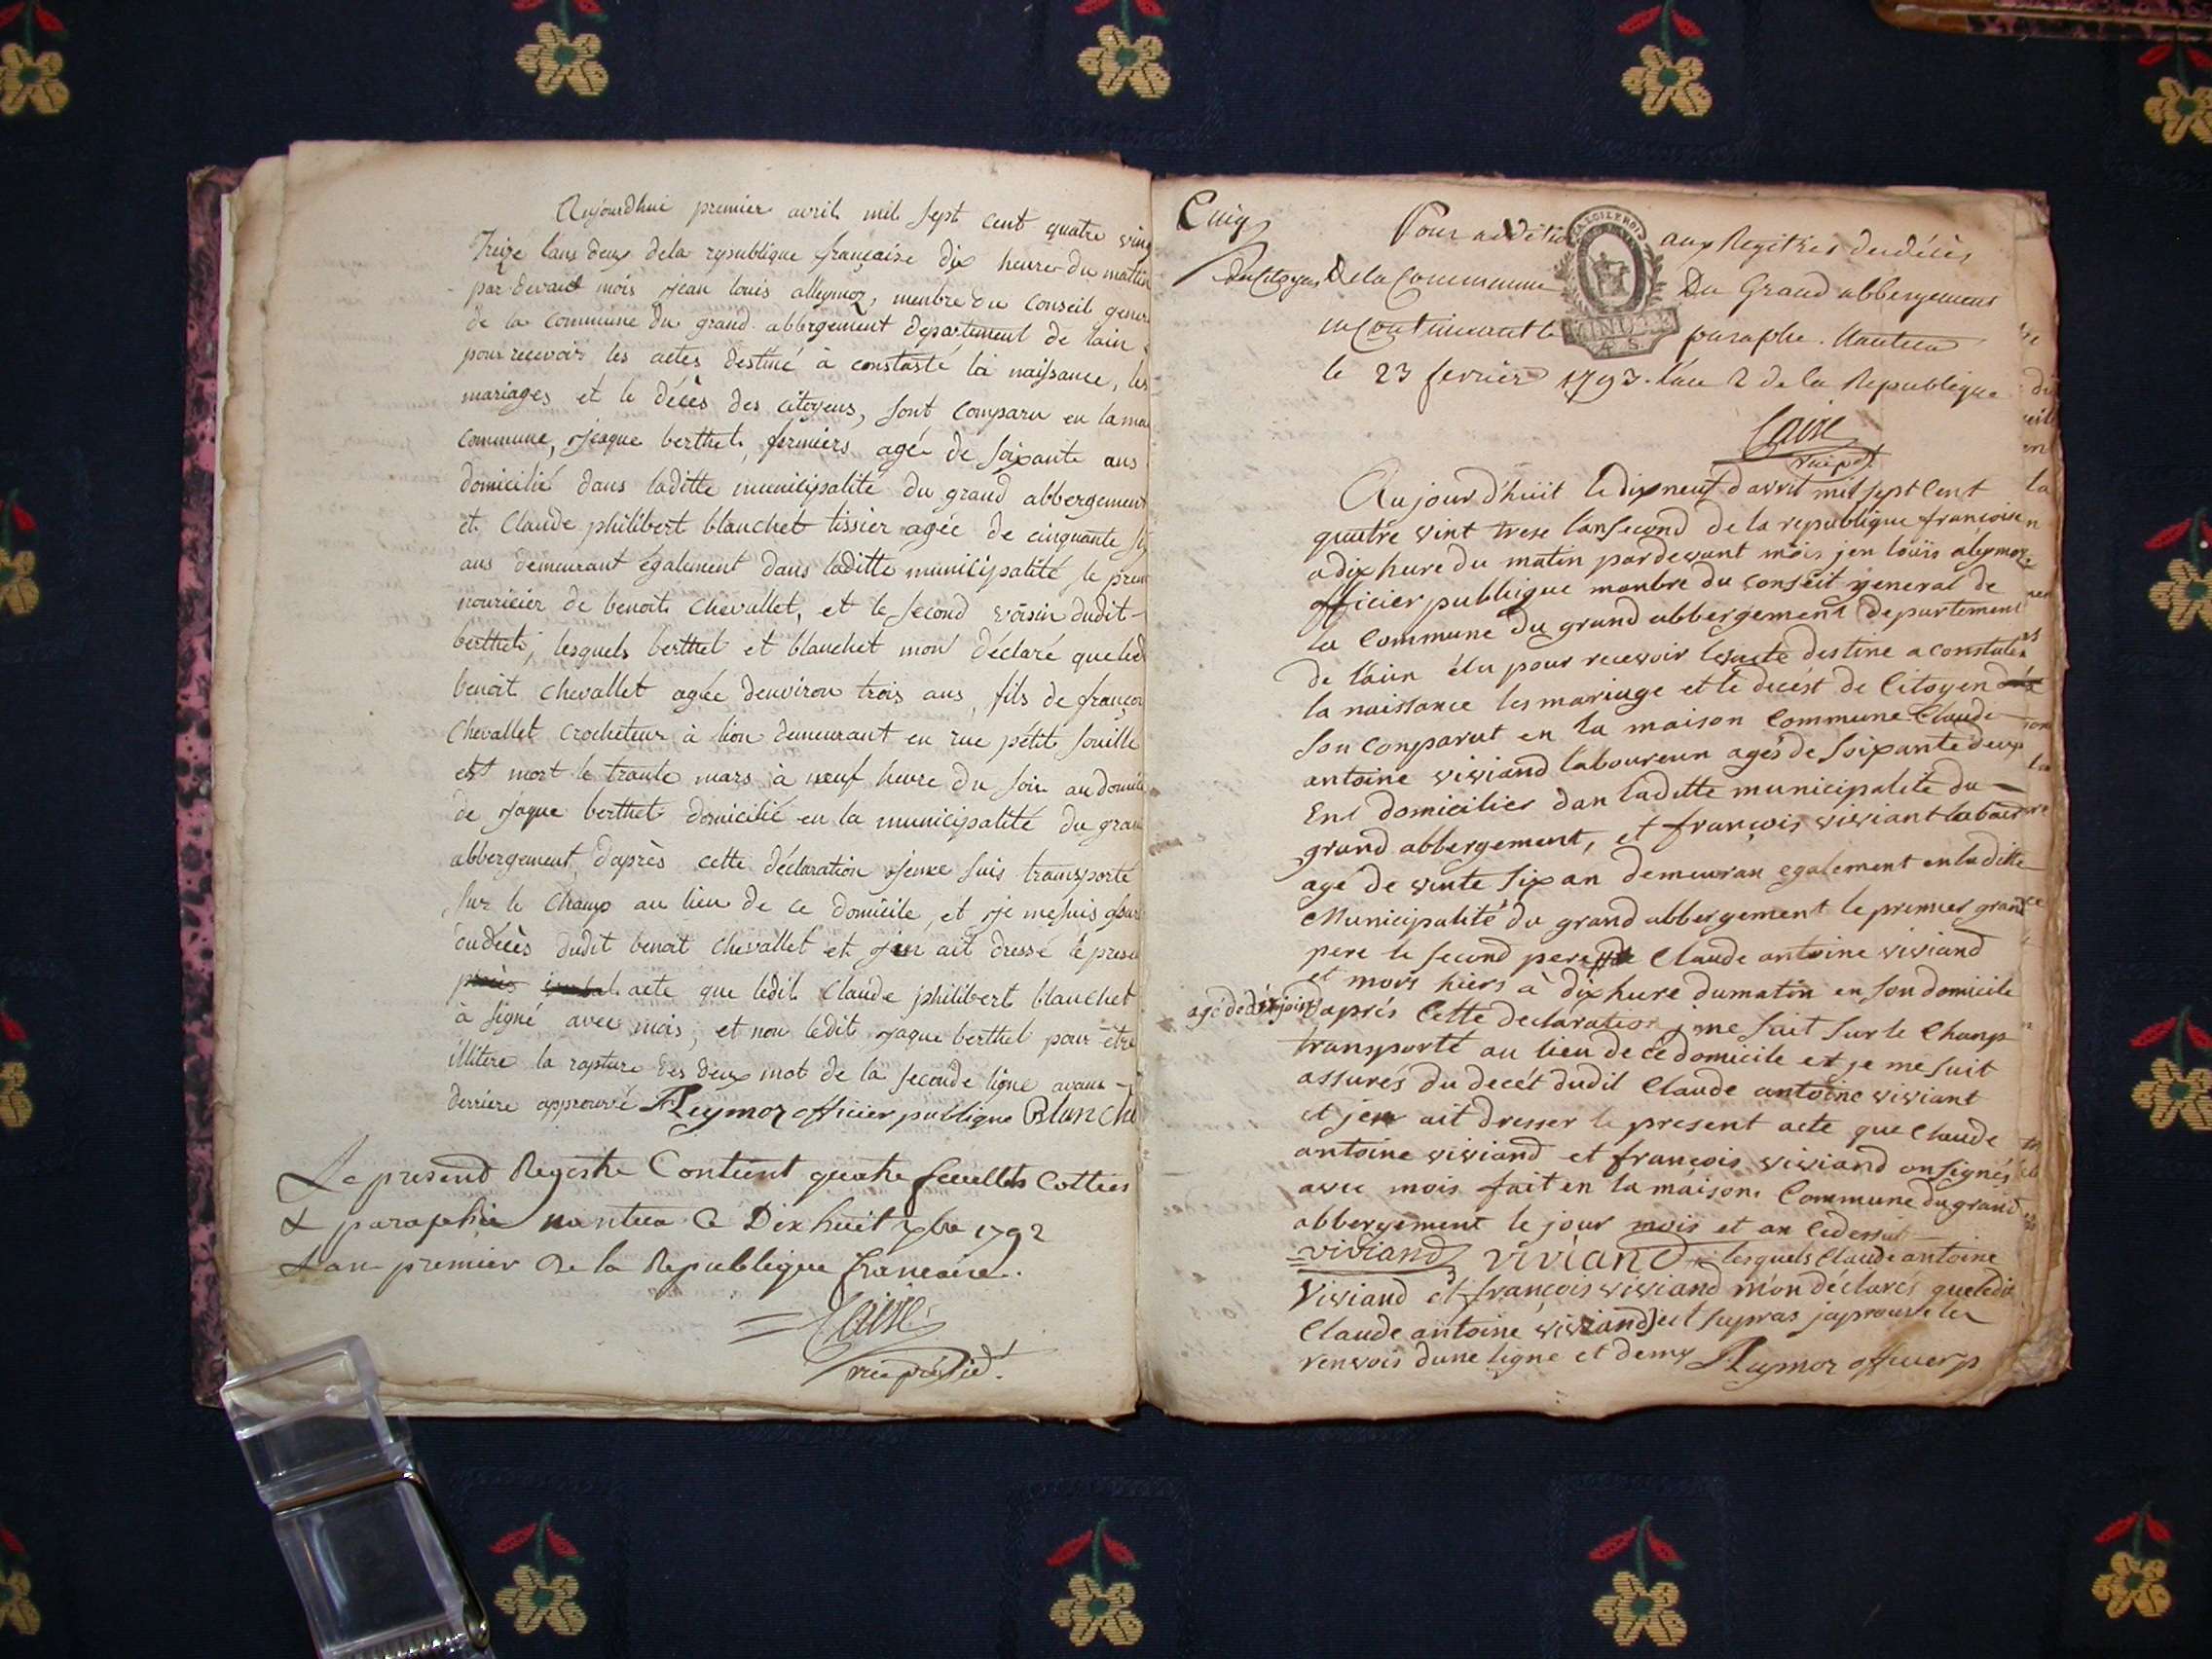 Aujourdhui premier avril mil sept cent quatre ving
Treize lans deux dela republique française dix heure du mattin
par devant mois jean louis alleymoz, membre du conseil gener
de la commune du grand abbergement departement de lain
pour recevoir les actes destiné à constasté la naissance, les
mariages et le décès des citoyens, sont comparu en la mai
commune, jacque berthet, fermiers agé de soixante ans
domicilié dans laditte municipalité du grand abbergement
et Claude philibert blanchet tissier agée de cinquante six
ans demeurant également dans laditte municipalité, le prem
nouricier de benoit chevallet, et le second voisin dudit
berthet, lesquels berthet et blanchet mont déclaré queled
benoit chevallet agée denviron trois ans, fils de françoi
Chevallet crocheteur à lion demeurant en rue pétit souille
est mort le trante mars à neuf heure du soir au domicile
de jaque berthet domicilié en la municipalité du gran
abbergement, daprès cette déclaration jeme suis transporté
sur le champ au lieu de ce domicile, et je mesuis assuré
du décès dudit benoit chevallet et j'en ait dressé le prese
acte que ledit Claude philibert blanchet
à signé avec mois, et non ledit jaque berthet pour être
illitere la rapture des deux mot de la seconde ligne avant
derriere approuvé Aleymoz officier publique Blanche
Le present Registre Contient quatre feuillets Cottés
& paraphés nantua ce Dix huit xbre 1792
L'an premier de la Republique francaise.
Caire
vice présid.t
Cinq
Pour addition aux Registres des décès
du Citoyens de la Commune Du Grand abbergement
paraphe. Nantua
le 23 fevrier 1793. l'an 2 de la Republique
Caire
vice pdt.
Aujourd'huit le dixneuf d'avril mil sept Cent
quatre vint trese lan second de la republique francoise
a dix hure du matin pardevant mois jen louis aleymoz
officier publique manbre du conseit general de
la Commune du grand abbergement departement
de l'ain élu pour recevoir les acte destine a constater
la naissance les mariage et le decést de Citoyen
son conparut en la maison Commune Claude
antoine viviand laboureur agés de soixante deux
ent domicilier dan laditte municipalité du
grand abbergement, et françois viviant labour
agé de vinte six an demeuran egalement en la ditte
Municipalité du grand abbergement le premier grand
pere le second pere de Claude antoine viviand
et mors hiers à dix hure du matin en son domicile
d'aprés Cette declaration je me suit sur le Champ
transporté au lieu de ce domicile et je me suit
assurés du decét dudit Claude antoine viviant
et jen ait dresser le present acte que Claude
antoine viviand et françois viviand on signés
avec mois fait en la maison Commune du grand
abbergement le jour mois et an cidessut
viviand viviand lesquels Claude antoine
viviand et françois viviand m'on déclarés queledit
Claude antoine viviand suit supras japrouve le
renvois dune ligne et demy Aleymoz officier p